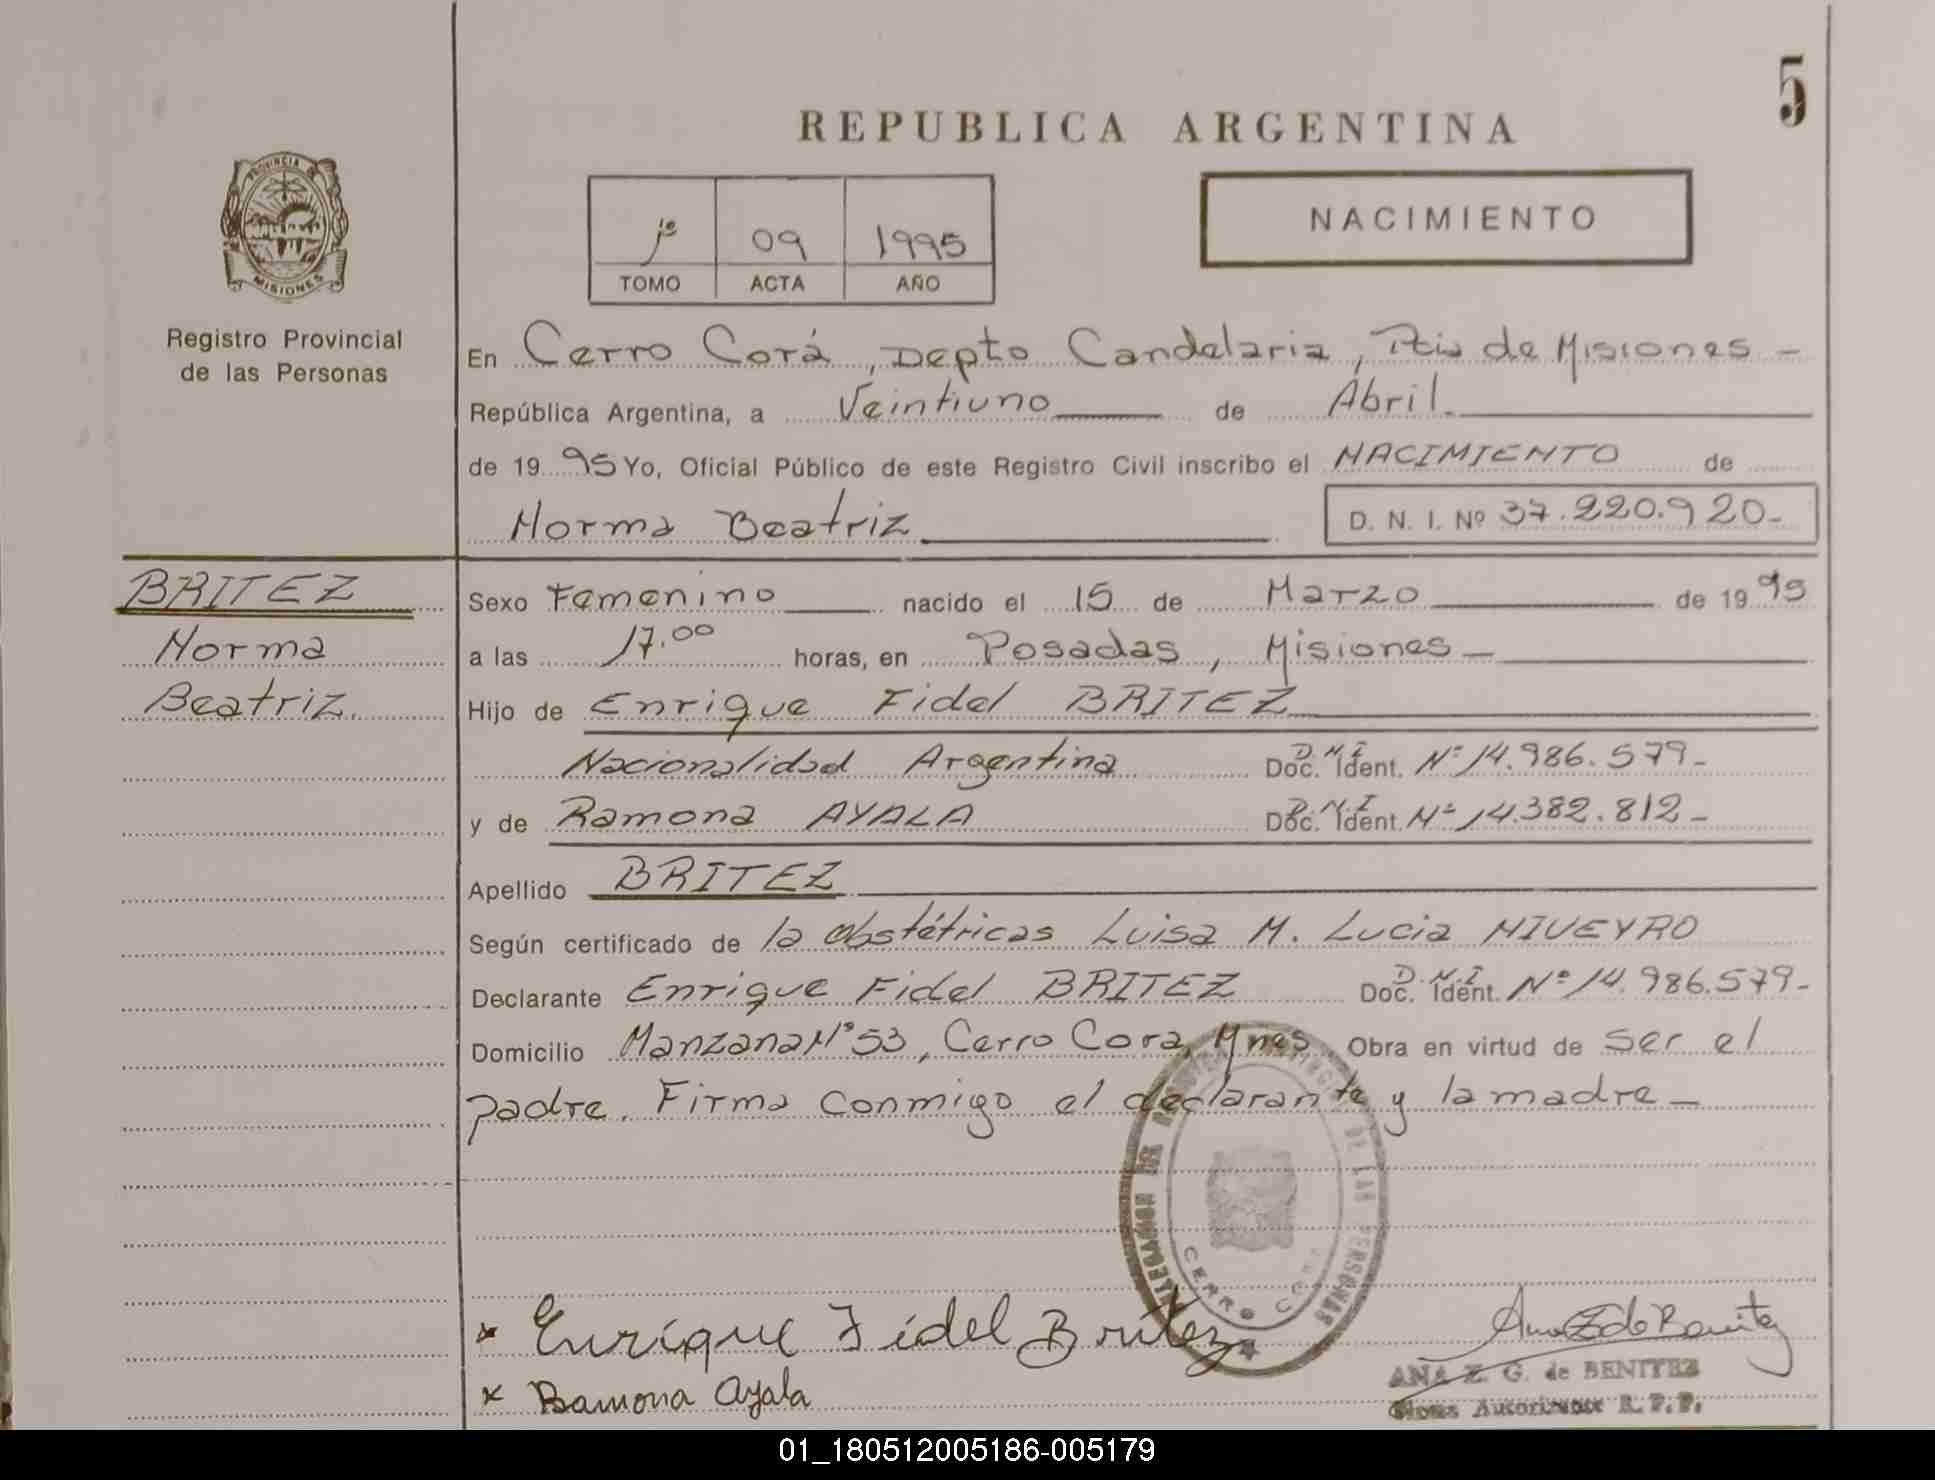 5
REPUBLICA ARGENTINA
PROVINCIA DE
MISIONES
Registro Provincial
de las Personas
1º 09 1995
TOMO ACTA AÑO
NACIMIENTO
En Cerro Corá, Depto Candelaria, Pcia de Misiones -
República Argentina, a Veintiuno de Abril.
de 19 95 Yo, Oficial Público de este Registro Civil inscribo el NACIMIENTO de
Norma Beatriz D. N. I. Nº 37.220.920-
BRITEZ
Norma
Beatriz.
Sexo Femenino nacido el 15 de Marzo de 19 95
a las 17.00 horas, en Posadas, Misiones -
Hijo de Enrique Fidel BRITEZ
Nacionalidad Argentina Doc. Ident. D.N.I Nº 14.986.579-
y de Ramona AYALA Doc. Ident. D.N.I Nº 14.382.812-
Apellido BRITEZ
Según certificado de la obstétricas Luisa M. Lucia NIVEYRO
Declarante Enrique Fidel BRITEZ Doc. Ident. D.N.I Nº 14.986.579-
Domicilio Manzana Nº 53, Cerro Cora, Mnes Obra en virtud de ser el
padre. Firma conmigo el declarante y la madre -
DE LAS PERSONAS
CERRO CORA
x Enrique Fidel Britez
x Ramona Ayala
Ana Z de Benitez
ANA Z. G. de BENITEZ
R. P. P.
01_180512005186-005179